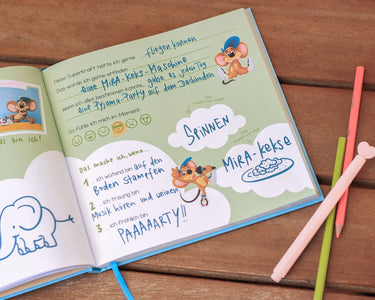 Diese Superkraft hätte ich gerne: fliegen können
Das würde ich gerne erfinden:
eine MiRA-Keks-Maschine
Wenn ich alles bestimmen könnte, gäbe es jeden Tag
eine Pyjama-Party auf dem
So fühle ich mich im Moment:
bin ich!
Das mache ich, wenn...
1 ... ich wütend bin: auf den
Boden stampfen
2 ... ich traurig bin:
Musik hören und weinen
3 ... ich fröhlich bin:
PAAAAARTY!!
SPiNNEN
MiRA-kekse